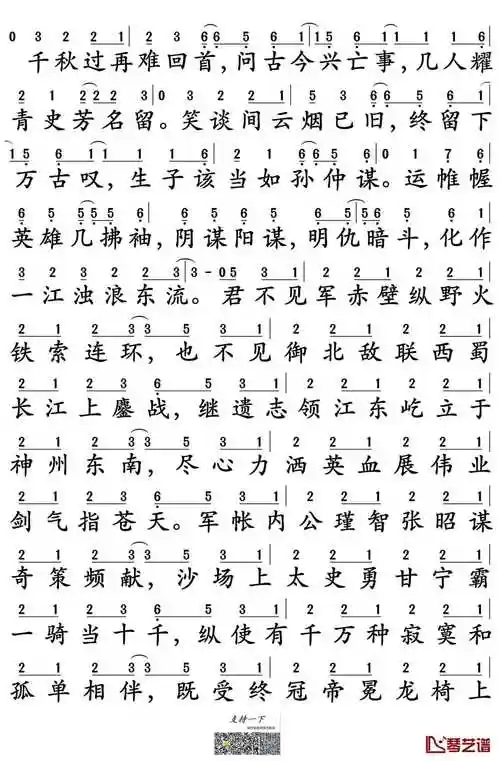 0 3 2 2 1 2 3 6 6 5 6 1 1 5 6 1 2 2 1 1 6
千秋过再难回首,问古今兴亡事,几人耀
2 1 2 2 2 3 0 3 2 2 1 5 3 6 6 5 6 1
青史芳名留。笑谈间云烟已旧,终留下
1 5 6 1 2 2 1 1 6 2 1 6 6 5 6 0 1 7 6
万古叹,生子该当如孙仲谋。运帷幄
英雄几拂袖,阴谋阳谋,明仇暗斗,化作
3 2 3 2 2 3 3 - 0 5 3 1 2 2 1 2 2 1
一江浊浪东流。君不见军赤壁纵野火
2 1 2 2 3 5 3 1 2 2 1 2 2 1
铁索连环,也不见御北敌联西蜀
2 1 2 2 3 6 5 3 1 2 2 1 2 2 1
长江上鏖战,继遗志领江东屹立于
2 1 2 2 3 5 3 1 2 2 1 2 2 1
神州东南,尽心力洒英血展伟业
2 1 2 3 6 5 3 1 2 2 1 2 2 1
剑气指苍天。军帐内公瑾智张昭谋
2 1 2 2 3 5 3 1 2 2 1 2 2 1
奇策频献,沙场上太史勇甘宁霸
2 1 2 3 6 5 3 1 2 2 1 2 2 1
一骑当十千,纵使有千万种寂寞和
2 1 2 2 3 5 3 1 2 2 1 2 2 1
孤单相伴,既受终冠帝冕龙椅上
支持一下
琴艺谱